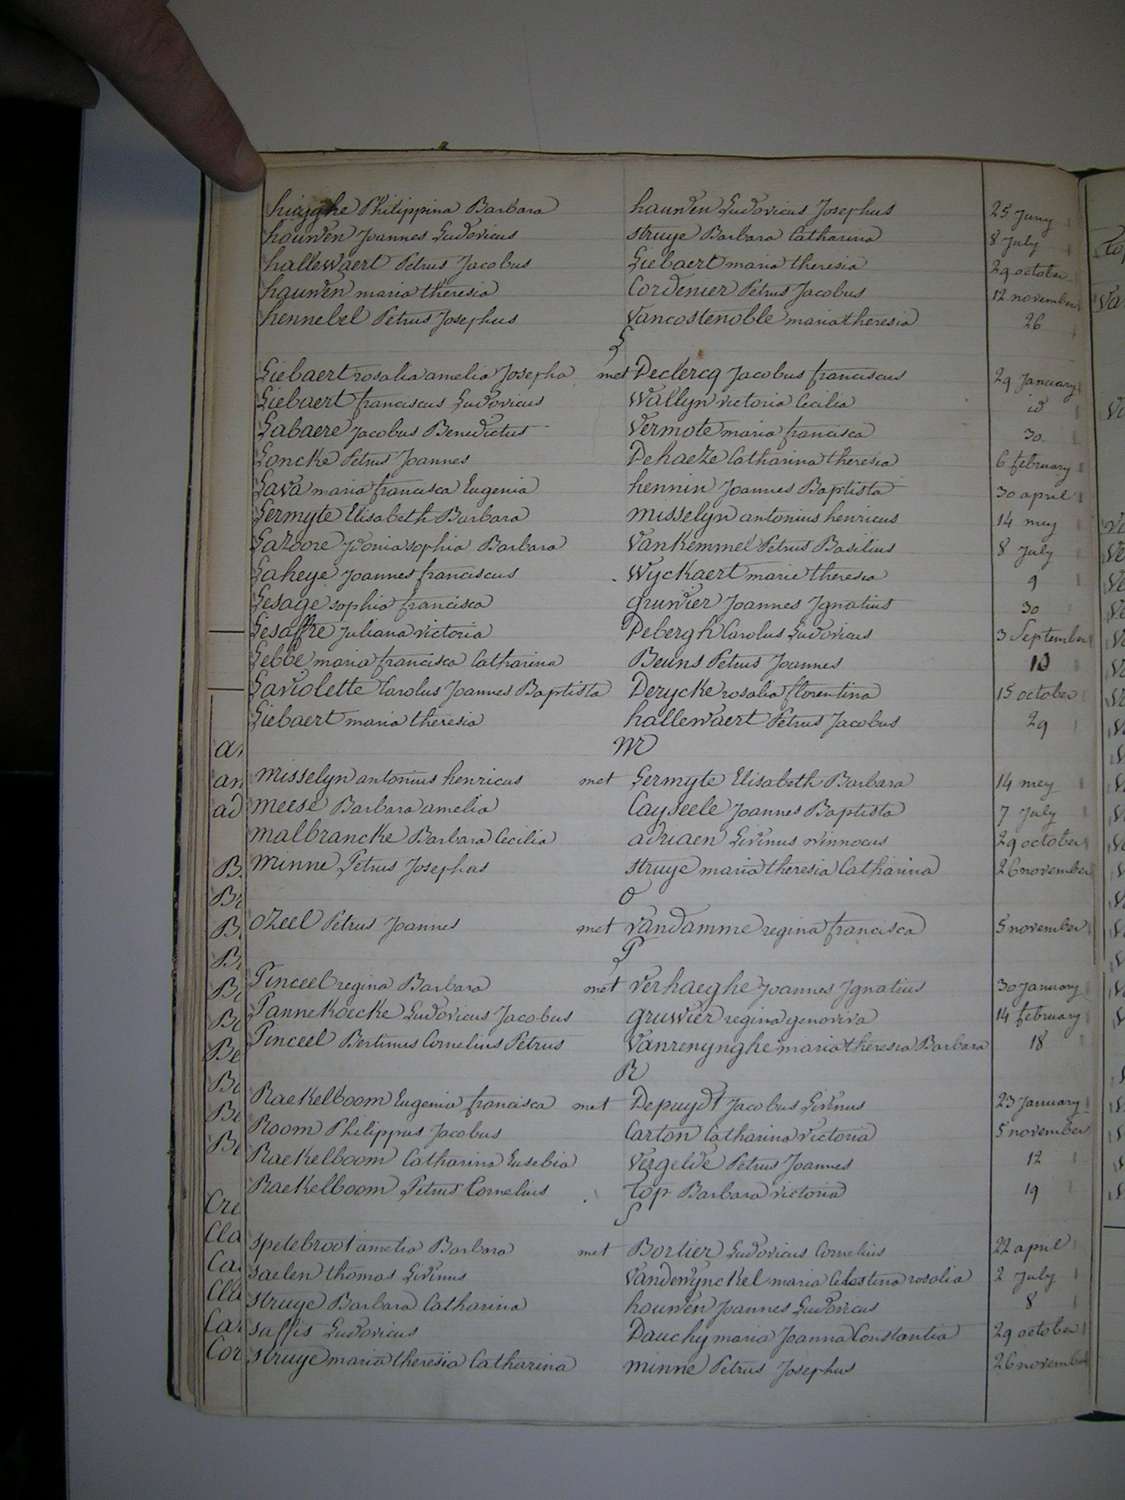 Philippina Barbara hauwen Ludovicus Josephus 25 Juny
hauwen Joannes Ludovicus struye Barbara Catharina 8 July
hallewaert Petrus Jacobus Liebaert maria theresia 29 october
hauwen maria theresia Cordenier Petrus Jacobus 12 november
hennebel Petrus Josephus Vancostenoble maria theresia 26
L
Liebaert rosalia amelia Josepha met Declercq Jacobus franciscus 29 January
Liebaert franciscus Ludovicus Wallyn victoria Cecilia id
Labaere Jacobus Benedictus Vermote maria francisca 30
Loncke Petrus Joannes Dehaeze Catharina theresia 6 february
Lava maria francisca Eugenia hennin Joannes Baptista 30 april
Lermyte Elisabeth Barbara misselyn antonius henricus 14 mey
sophia Barbara Vankemmel Petrus Basilius 8 July
Laheye Joannes franciscus Wyckaert marie theresia 9
Lesage sophia francisca gruwier Joannes Ignatius 30
Lesaffre Juliana victoria Debergh Carolus Ludovicus 3 September
Lebbe maria francisca Catharina Beuns Petrus Joannes 10
Laviolette Carolus Joannes Baptista Derycke rosalia florentina 15 october
Liebaert maria theresia hallewaert Petrus Jacobus 29
M
misselyn antonius henricus met Lermyte Elisabeth Barbara 14 mey
meese Barbara amelia Cayseele Joannes Baptista 7 July
malbrancke Barbara Cecilia adriaen Livinus winnocus 29 october
minne Petrus Josephus struye maria theresia Catharina 26 november
O
ozeel Petrus Joannes met vandamme regina francisca 5 november
P
Pinceel regina Barbara met verhaeghe Joannes Ignatius 30 January
Pannekoecke Ludovicus Jacobus gruwier regina genoviva 14 february
Pinceel Bertinus Cornelius Petrus Vanrenynghe maria theresia Barbara 18
R
Raekelboom Eugenia francisca met Depuydt Jacobus Livinus 23 January
Room Philippus Jacobus Carton Catharina victoria 5 november
Raekelboom Catharina Eusebia Vergelde Petrus Joannes 12
Raekelboom Petrus Cornelius Top Barbara victoria 19
S
spetebroot amelia Barbara met Bortier Ludovicus Cornelius 22 april
saelen thomas Livinus Vandewynckel maria Celestina rosalia 2 July
struye Barbara Catharina houwen Joannes Ludovicus 8
saffis Ludovicus Dauchy maria Joanna Constantia 29 october
struye maria theresia Catharina minne Petrus Josephus 26 november